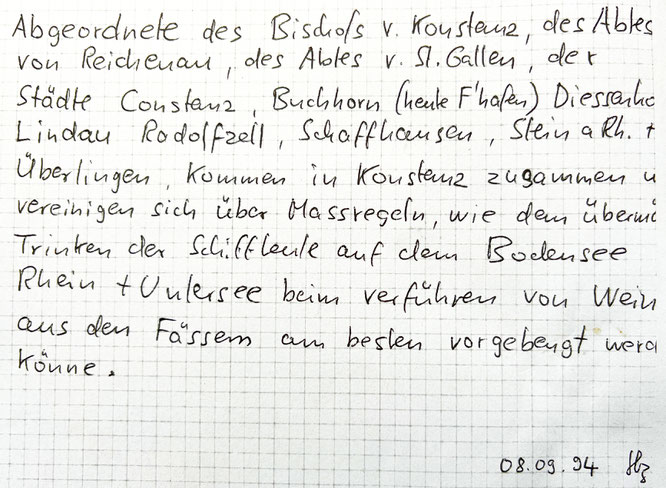 Abgeordnete des Bischofs v. Konstanz, des Abtes
von Reichenau, des Abtes v. St. Gallen, der
Städte Constanz, Buchhorn (heute F'hafen) Diessenho
Lindau Radolfzell, Schaffhausen, Stein a Rh. +
Überlingen, kommen in Konstanz zusammen u
vereinigen sich über Massregeln, wie dem überm
Trinken der Schiffleute auf dem Bodensee
Rhein + Untersee beim verführen von Wein
aus den Fässern am besten vorgebeugt werd
könne.
08.09.94